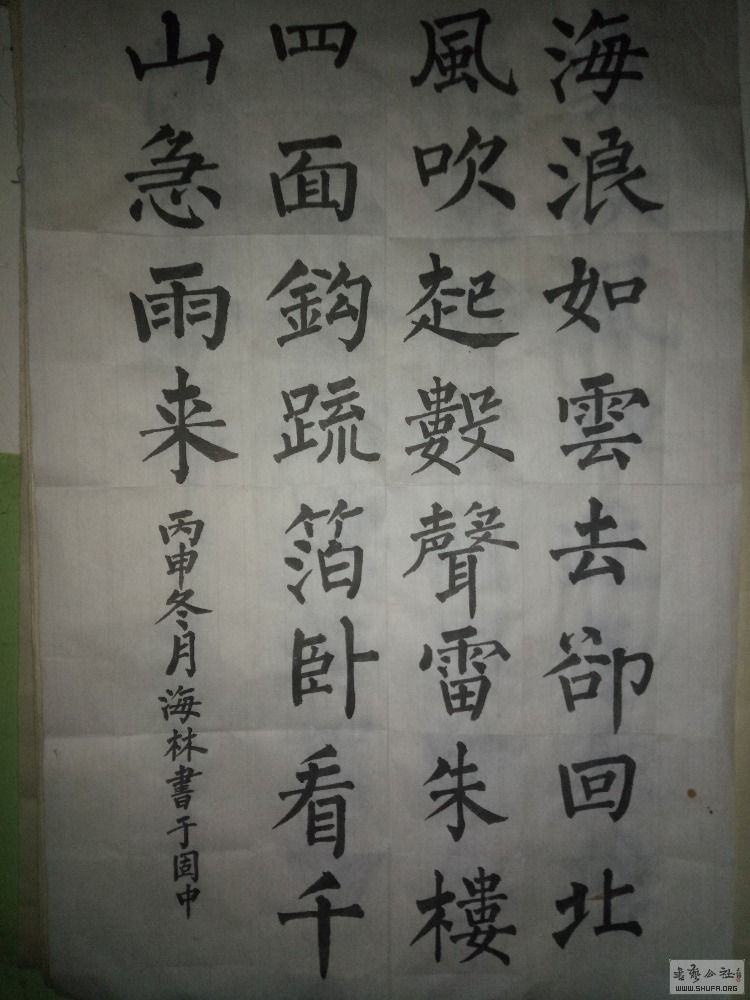 海浪如雲去卻回北
風吹起數聲雷朱樓
四面鈎疏箔卧看千
山急雨来
丙申冬月海林書于固中
书艺公社
WWW.SHUFA.ORG